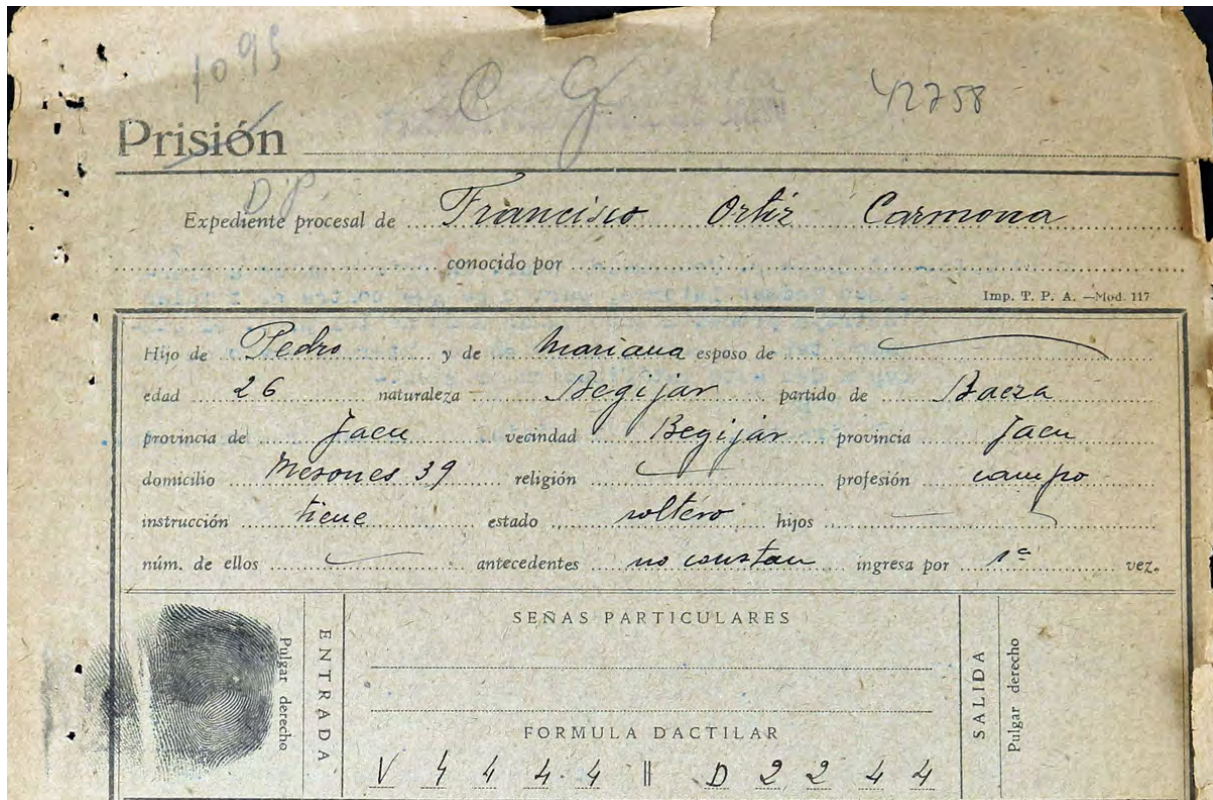 1095
C G 42758
Prisión
D.P.
Expediente procesal de Francisco Ortiz Carmona
conocido por
Imp. T. P. A. —Mod. 117
Hijo de Pedro y de Mariana esposo de
edad 26 naturaleza Begijar partido de Baeza
provincia de Jaen vecindad Begijar provincia Jaen
domicilio Mesones 39 religión profesión campo
instrucción tiene estado soltero hijos
núm. de ellos antecedentes no constan ingresa por 1ª vez.
Pulgar derecho
ENTRADA
SEÑAS PARTICULARES
FORMULA DACTILAR
V 4 4 4 4 || D 2 2 4 4
SALIDA
Pulgar derecho